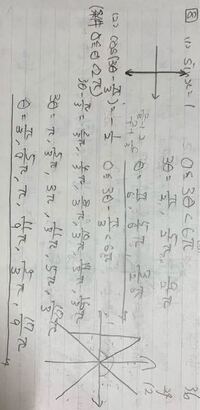 8 (1) sin x = 1
0 ≤ 3θ < 6π
3θ = π/2, 5/2π, 9/2π
θ = π/6, 5/6π, 3/2π
(2) cos(3θ - π/3) = -1/2 0 ≤ 3θ - π/3 < 6π
(条件 0 ≤ θ < 2π)
3θ - π/3 = 2/3π, 4/3π, 8/3π, 10/3π, 14/3π, 16/3π
3θ = π, 5/3π, 3π, 11/3π, 5π, 17/3π
θ = π/3, 5/9π, π, 11/9π, 5/3π, 17/9π